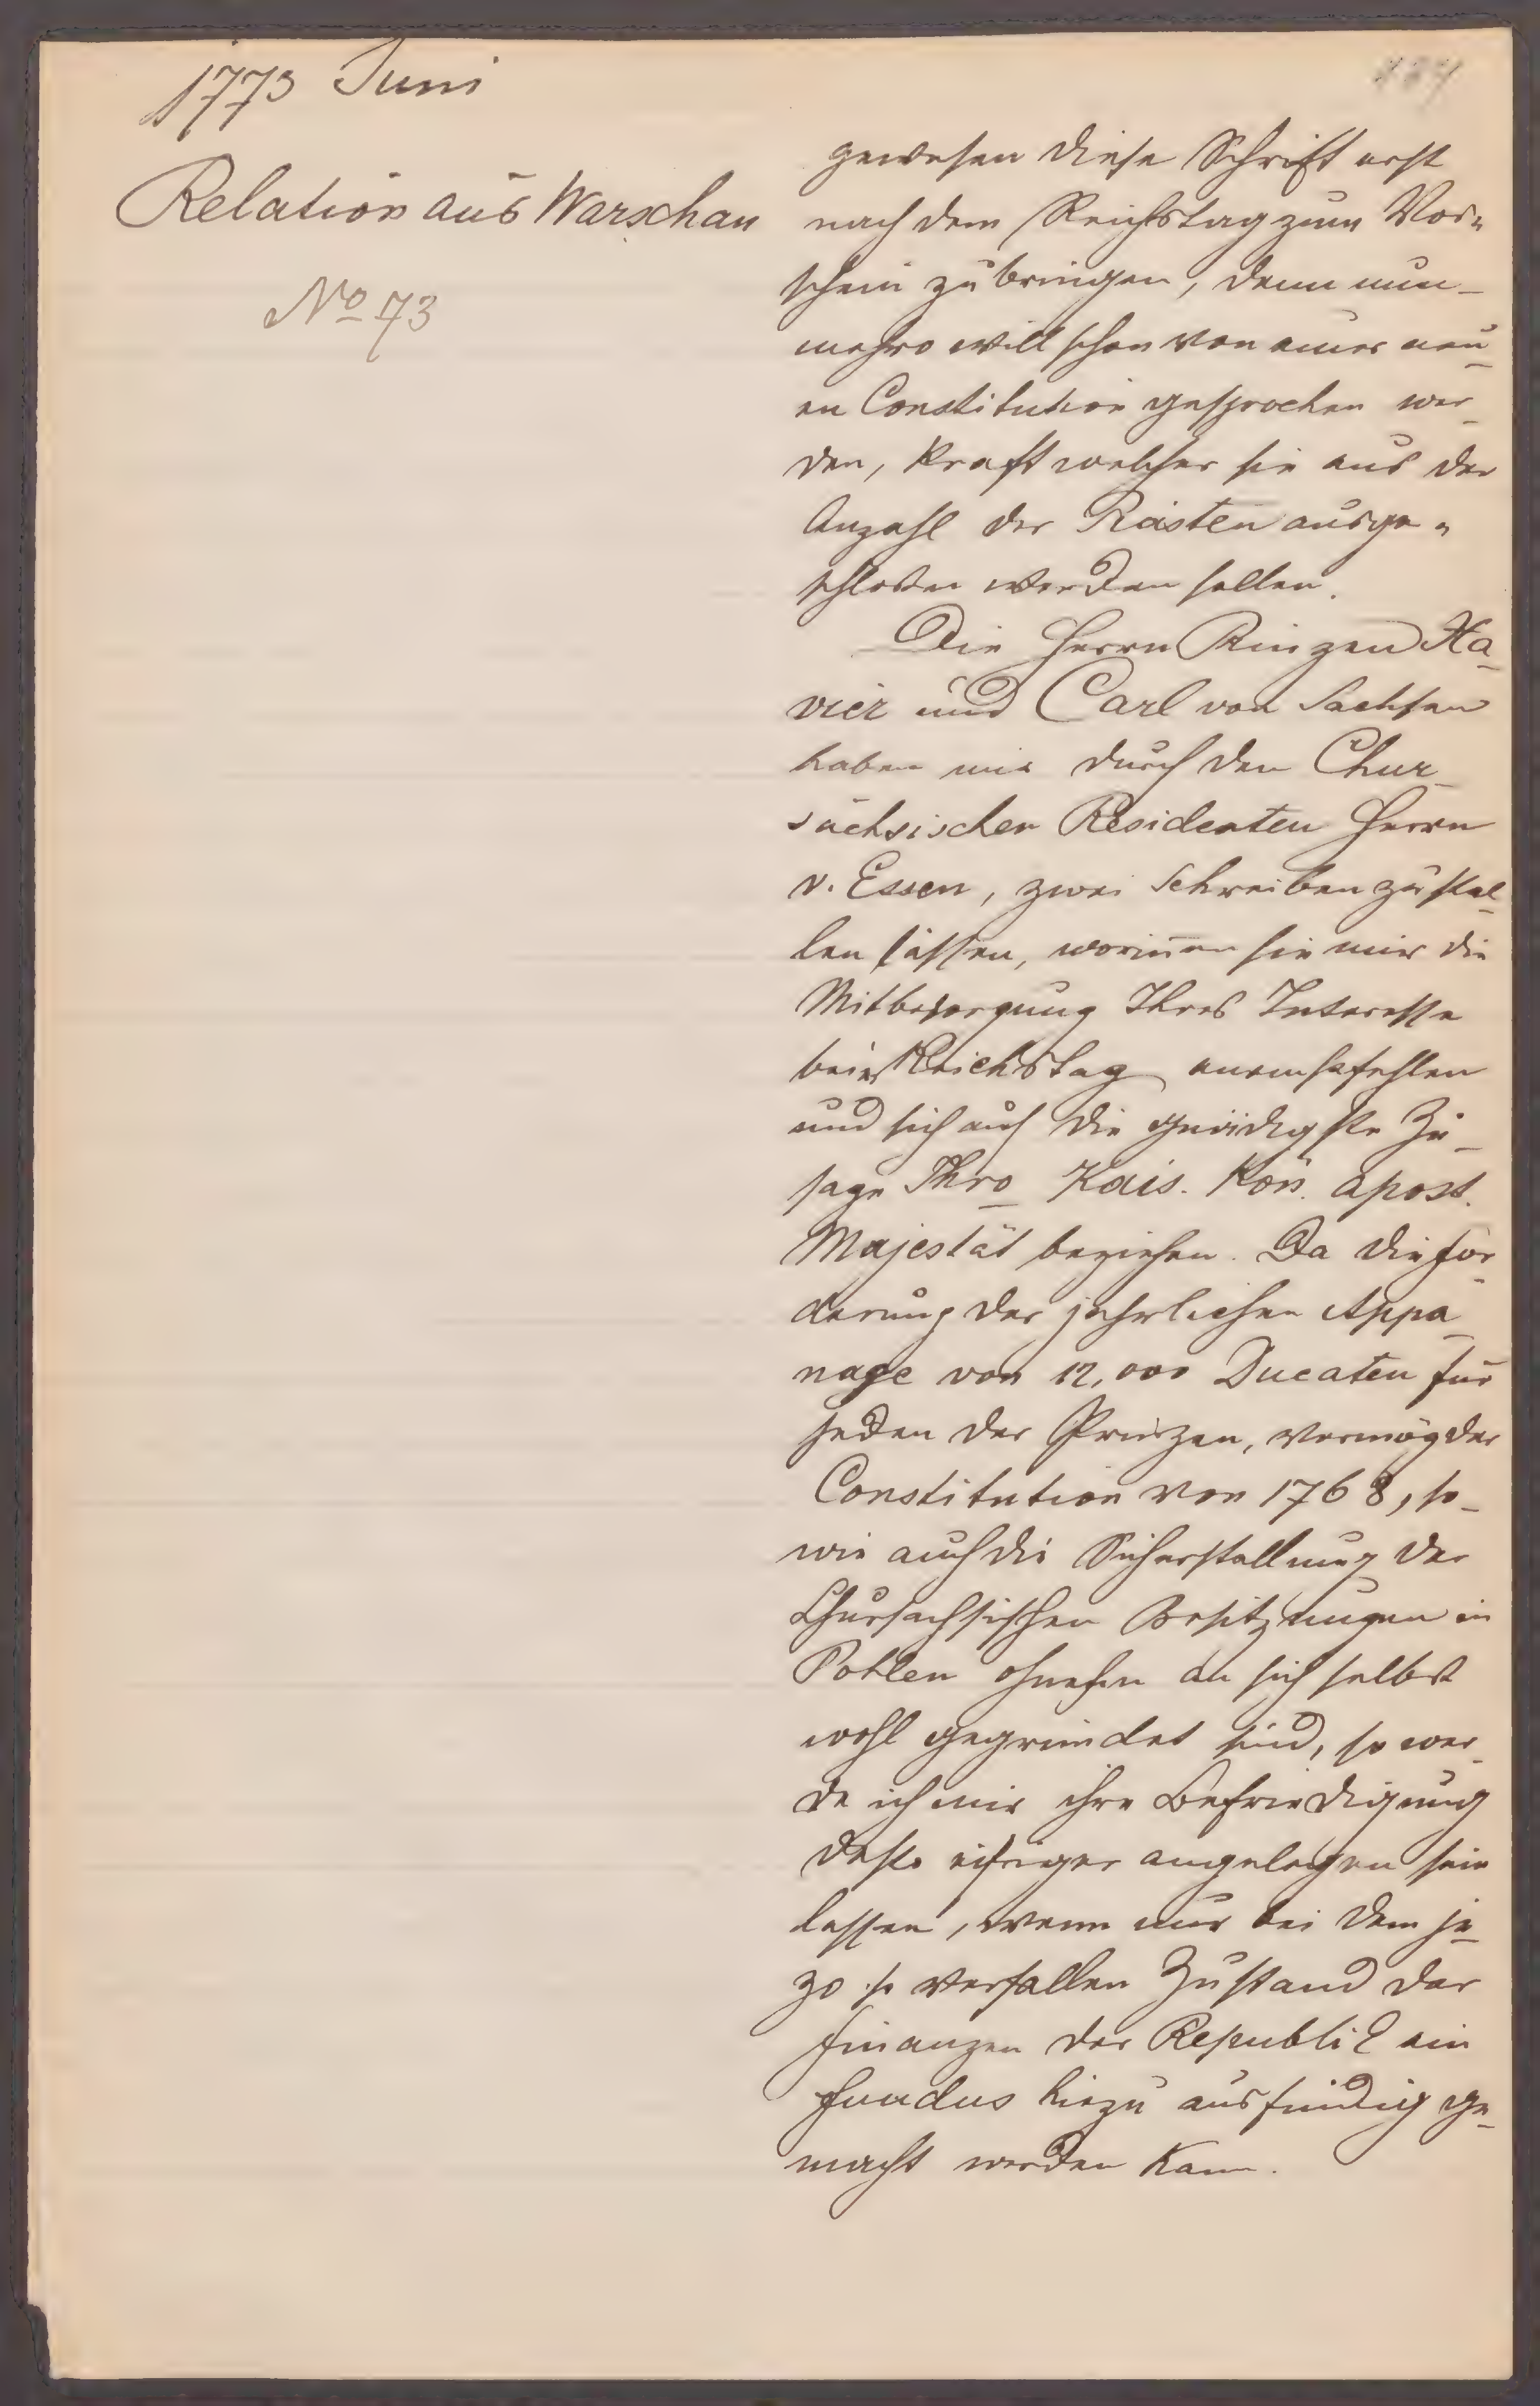 1773 Juni
Relation aus Warschau
No 73
gewesen diese Schrift erst
nach dem Reichstag zum Vor„
schein zu bringen, denn nun-
mehro will schon von einer neu-
en Constitution gesprochen wer-
den, kraft welcher sie aus der
Anzahl der Piasten ausge„
schlossen werden sollen.
Die Herrn Prinzen Xa-
vier und Carl von Sachsen
haben mir durch den Chur-
sächsischen Residenten Herrn
v. Essen, zwei Schreiben zustel-
len lassen, worinnen sie mir die
Mitbesorgung Ihres Interesse
beim Reichstag anempfehlen
und sich auf die gnädigste Zu-
sage Ihro Kais. Kön. apost.
Majestät beziehen. Da die For-
derung der jährlichen Appa-
nage von 12,000 Ducaten für
jeden der Prinzen, vermög der
Constitution von 1768, so-
wie auch die Sicherstellung der
Chursächsischen Besitzungen in
Pohlen ohnehin an sich selbst
wohl gegründet sind, so wer-
de ich mir ihre Befriedigung
desto eifriger angelegen sein
lassen, wenn nur bei dem je-
zo so verfallen Zustand der
Finanzen der Republik ein
Fundus hiezu ausfindig ge-
macht werden kann.